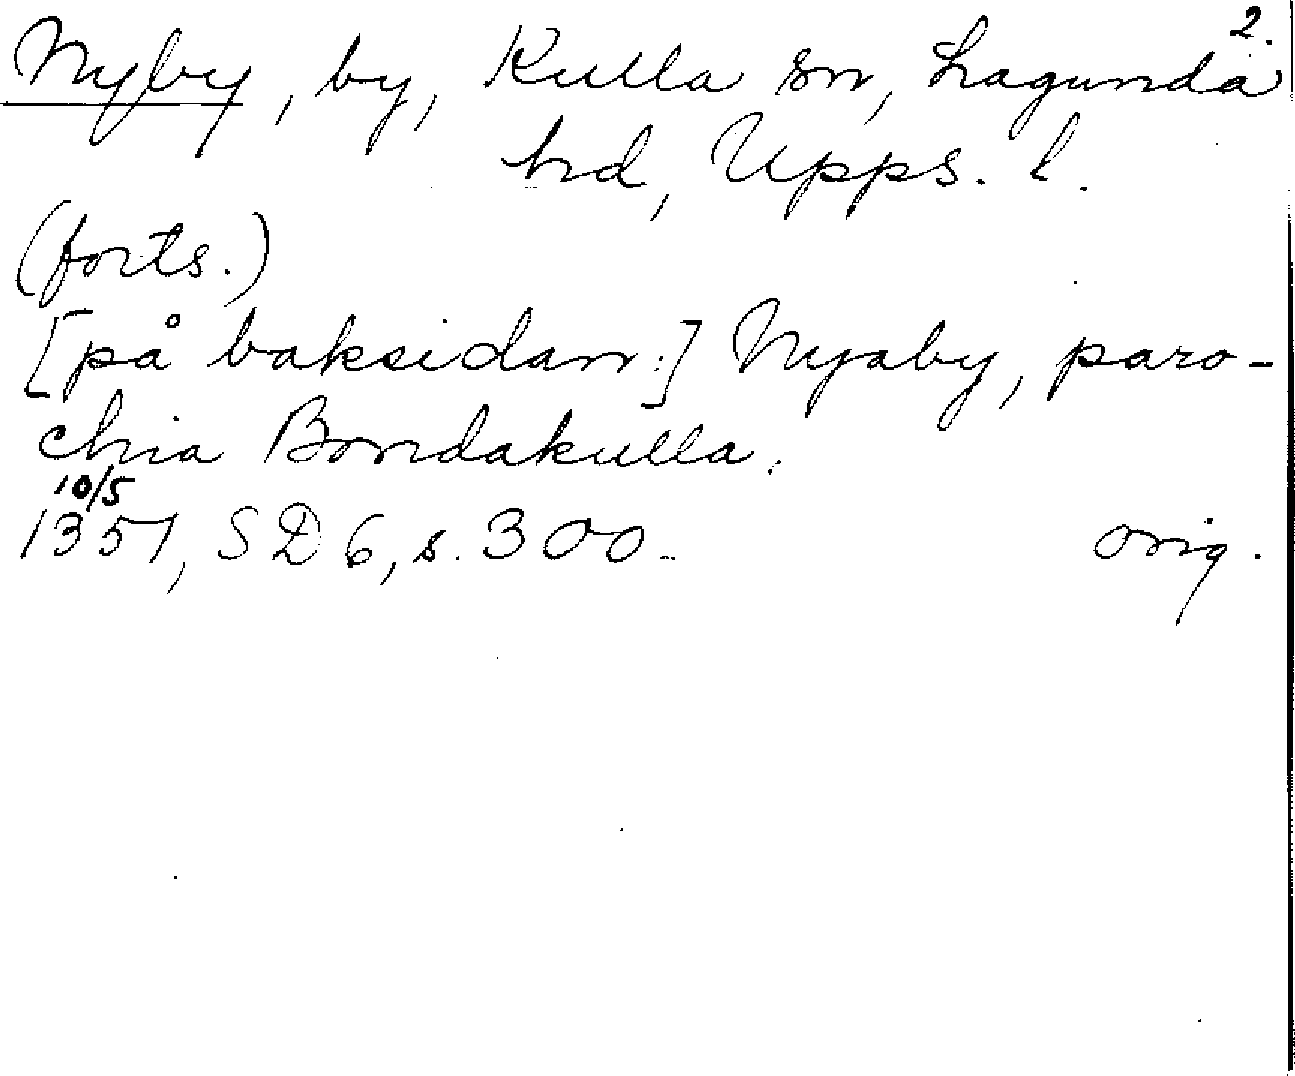 2.
Nyby, by, Kulla sn, Lagunda
hd, Upps. l.
(forts.)
[på baksidan:] Nyaby, paro-
chia Bondakulla.
10/5
1351, SD 6, s. 300. orig.